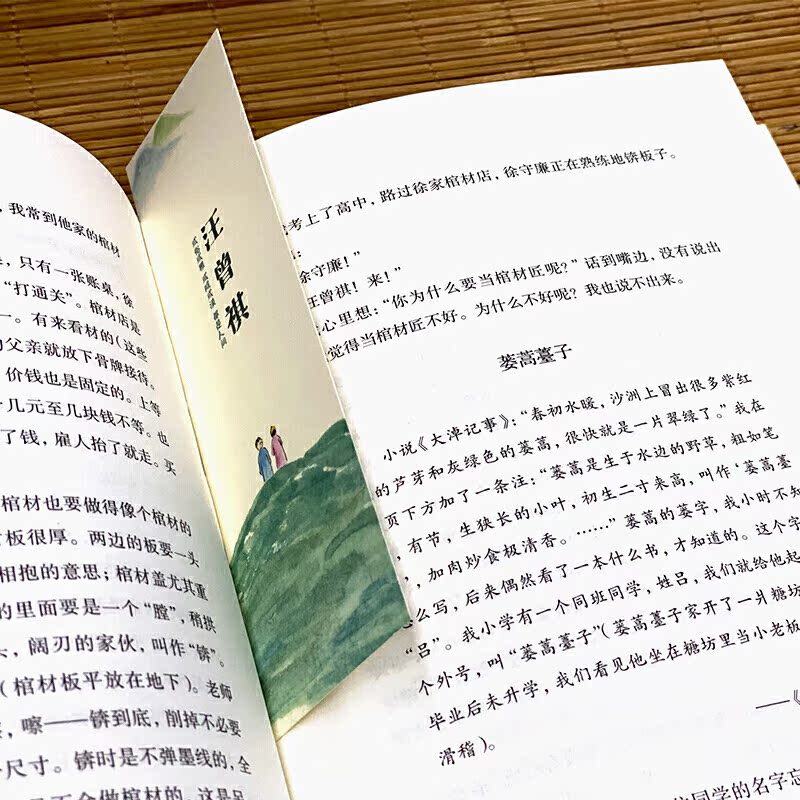 ，我常到他家的棺材
，只有一张账桌，徐
“打通关”。棺材店是
一。有来看材的（这些
父亲就放下骨牌接待。
价钱也是固定的。上等
几元至几块钱不等。也
了钱，雇人抬了就走。买
棺材也要做得像个棺材的
板很厚。两边的板要一头
相抱的意思；棺材盖尤其重
的里面要是一个“膛”，稍拱
，阔刃的家伙，叫作“锛”。
（棺材板平放在地下）。老师
，嚓——锛到底，削掉不必要
尺寸。锛时是不弹墨线的，全
汪曾祺
考上了高中，路过徐家棺材店，徐守廉正在熟练地锛板子。
：
徐守廉！”
汪曾祺！来！”
心里想：“你为什么要当棺材匠呢？”话到嘴边，没有说出
觉得当棺材匠不好。为什么不好呢？我也说不出来。
蒌蒿薹子
小说《大淖记事》：“春初水暖，沙洲上冒出很多紫红
的芦芽和灰绿色的蒌蒿，很快就是一片翠绿了。”我在
页下方加了一条注：“蒌蒿是生于水边的野草，粗如笔
，有节，生狭长的小叶，初生二寸来高，叫作‘蒌蒿薹
，加肉炒食极清香。……”蒌蒿的蒌字，我小时不知
么写，后来偶然看了一本什么书，才知道的。这个字
“吕”。我小学有一个同班同学，姓吕，我们就给他起
个外号，叫“蒌蒿薹子”（蒌蒿薹子家开了一爿糖坊
毕业后未升学，我们看见他坐在糖坊里当小老板
滑稽）。
——《
同学的名字忘